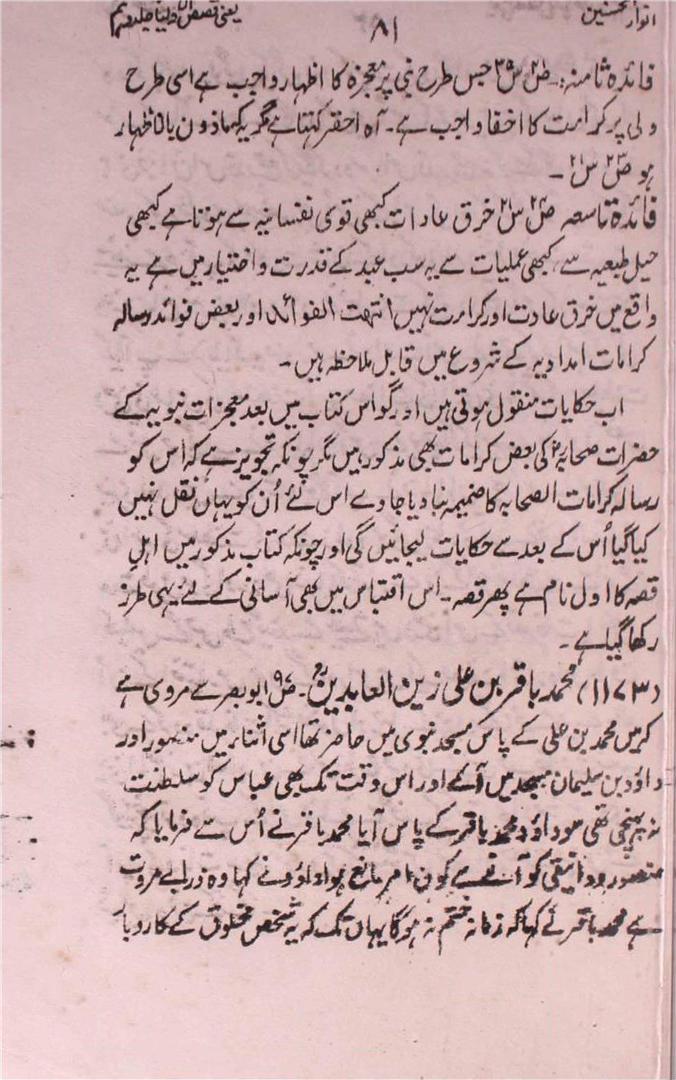 انوار المحسنین
۸۱
یعنی قصص الاولیا جلد دہم
فائدہ ثامنہ:۔ ص۲۱ س۳۹ جس طرح نبی پر معجزہ کا اظہار واجب ہے اسی طرح
ولی پر کرامت کا اخفا واجب ہے۔ آہ احقر کہتا ہے مگر یہ کہ ماذون بالاظہار
ہو ص۲۳ س۲۱۔
فائدۃ تاسعہ ص۲۴ س۲۱ خرق عادات کبھی قوی نفسانیہ سے ہوتا ہے کبھی
حیل طبعیہ سے کبھی عملیات سے یہ سب عبد کے قدرت و اختیار میں ہے یہ
واقع میں خرق عادت اور کرامت نہیں انتہت الفوائد اور بعض فوائد رسالہ
کرامات امدادیہ کے شروع میں قابل ملاحظہ ہیں۔
اب حکایات منقول ہوتی ہیں اور گو اس کتاب میں بعد معجزات نبویہ کے
حضرات صحابہؓ کی بعض کرامات بھی مذکور ہیں مگر چونکہ تجویز ہے کہ اس کو
رسالہ کرامات الصحابہ کا ضمیمہ بنا دیا جاوے اس لئے اُن کو یہاں نقل نہیں
کیا گیا اُس کے بعد سے حکایات لیجائیں گی اور چونکہ کتاب مذکور میں اہل
قصہ کا اول نام ہے پھر قصہ۔ اس اقتباس میں بھی آسانی کے لئے یہی طرز
رکھا گیا ہے۔
(۱۱۷۳) محمد باقر بن علی زین العابدینؓ۔ ص۹۷ ابو بصر سے مروی ہے
کہ میں محمد بن علی کے پاس مسجد نبوی میں حاضر تھا اسی اثنا میں منصور اور
داؤد بن سلیمان مسجد میں آئے اور اس وقت تک بھی عباس کو سلطنت
نہ پہنچی تھی سو داؤد محمد باقر کے پاس آیا محمد باقر نے اُس سے فرمایا کہ
منصور دوانیقی کو آنے سے کون امر مانع ہوا داؤد نے کہا وہ ذرا بے مروت
ہے محمد باقر نے کہا کہ زمانہ ختم نہ ہوگا یہاں تک کہ یہ شخص مخلوق کے کاروبار